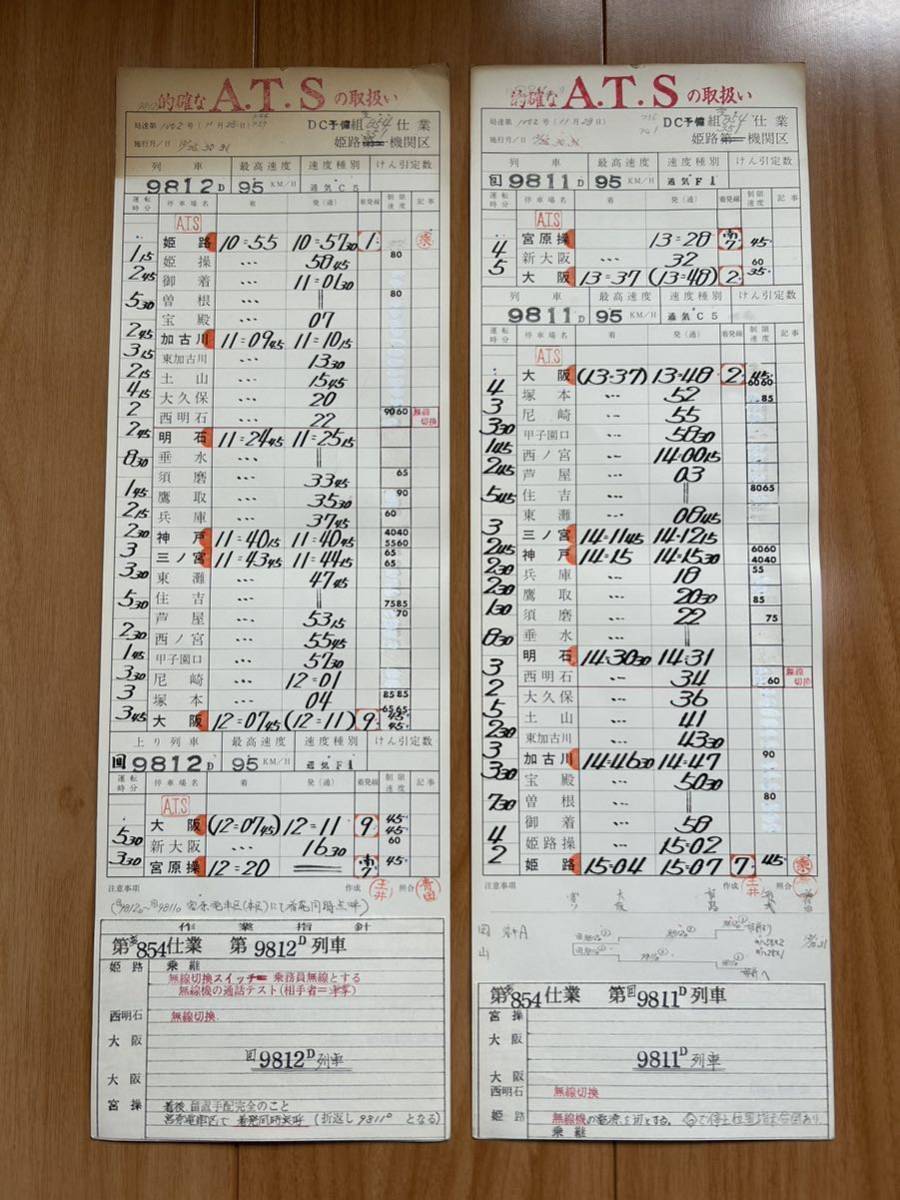 的確な A.T.S の取扱い
局達第 1102号 (11月28日)
DC予備組 854 仕業
施行月/日
姫路 機関区
列車 最高速度 速度種別 けん引定数
9812D 95 KM/H 通気C5
運転時分 停車場名 着 発(通) 着発線 制限速度 記事
A.T.S
姫路 10=55 10=57 30 1
1 15 姫操 … 58 45 80
2 45 御着 … 11=01 30
曽根 … || 80
5 30 宝殿 … 07
2 45 加古川 11=09 45 11=10 15
3 15 東加古川 … 13 30
2 15 土山 … 15 45
4 15 大久保 … 20
2 西明石 … 22 90 60 無線切換
2 45 明石 11=24 45 11=25 15
垂水 … ||
8 30 須磨 … 33 45 65
1 45 鷹取 … 35 30 90
2 15 兵庫 … 37 45 60
2 30 神戸 11=40 15 11=40 45 40 40 55 60
3 三ノ宮 11=43 45 11=44 15 65 65
3 30 東灘 … 47 45
住吉 … || 75 85
5 30 芦屋 … 53 15 70
2 30 西ノ宮 … 55 45
1 45 甲子園口 … 57 30
3 30 尼崎 … 12=01
3 塚本 … 04 85 85
3 45 大阪 12=07 45 (12=11) 9 65 65 45 45
上り列車 最高速度 速度種別 けん引定数
回 9812D 95 KM/H 通気F1
運転時分 停車場名 着 発(通) 着発線 制限速度 記事
A.T.S
大阪 (12=07 45) 12=11 9 45 45
5 30 新大阪 16 30 60
3 30 宮原操 12=20 南7 45
注意事項 作成 土井 照合 吉田
作業指針
第854仕業 第9812D列車
姫路 乗継
無線切換スイッチ= 乗務員無線とする
無線機の通話テスト(相手者=車掌)
西明石 無線切換.
大阪
回9812D列車
大阪
宮操 着後 留置手配完全のこと
(折返し9811Dとなる)
的確な A.T.S の取扱い
局達第 1102号 (11月28日)
DC予備組 854 仕業
施行月/日
姫路 機関区
列車 最高速度 速度種別 けん引定数
回 9811D 95 KM/H 通気F1
運転時分 停車場名 着 発(通) 着発線 制限速度 記事
A.T.S
宮原操 13=28 南7 45
4 新大阪 … 32 60
5 大阪 13=37 (13=48) 2 35
列車 最高速度 速度種別 けん引定数
9811D 95 KM/H 通気C5
運転時分 停車場名 着 発(通) 着発線 制限速度 記事
A.T.S
大阪 (13=37) 13=48 2 45 60 60
4 塚本 … 52 85
3 尼崎 … 55
3 30 甲子園口 … 58 30
1 45 西ノ宮 … 14=00 15
2 45 芦屋 … 03
住吉 … || 80 65
5 45 東灘 … 08 45
3 三ノ宮 14=11 45 14=12 15
2 45 神戸 14=15 14=15 30 60 60 40 40
2 30 兵庫 … 18 55
2 30 鷹取 … 20 30 85
1 30 須磨 … 22 75
垂水 … ||
8 30 明石 14=30 30 14=31
3 西明石 … 34 60 無線切換
2 大久保 … 36
5 土山 … 41
2 30 東加古川 … 43 30
3 加古川 14=46 30 14=47 90
3 30 宝殿 … 50 30
曽根 … || 80
7 30 御着 … 58
4 姫路操 … 15=02
2 姫路 15=04 15=07 7 45
注意事項 作成 土井 照合
第854仕業 第回9811D列車
宮操
大阪
9811D列車
大阪
西明石 無線切換
姫路 無線機の電源を切とする。
乗継